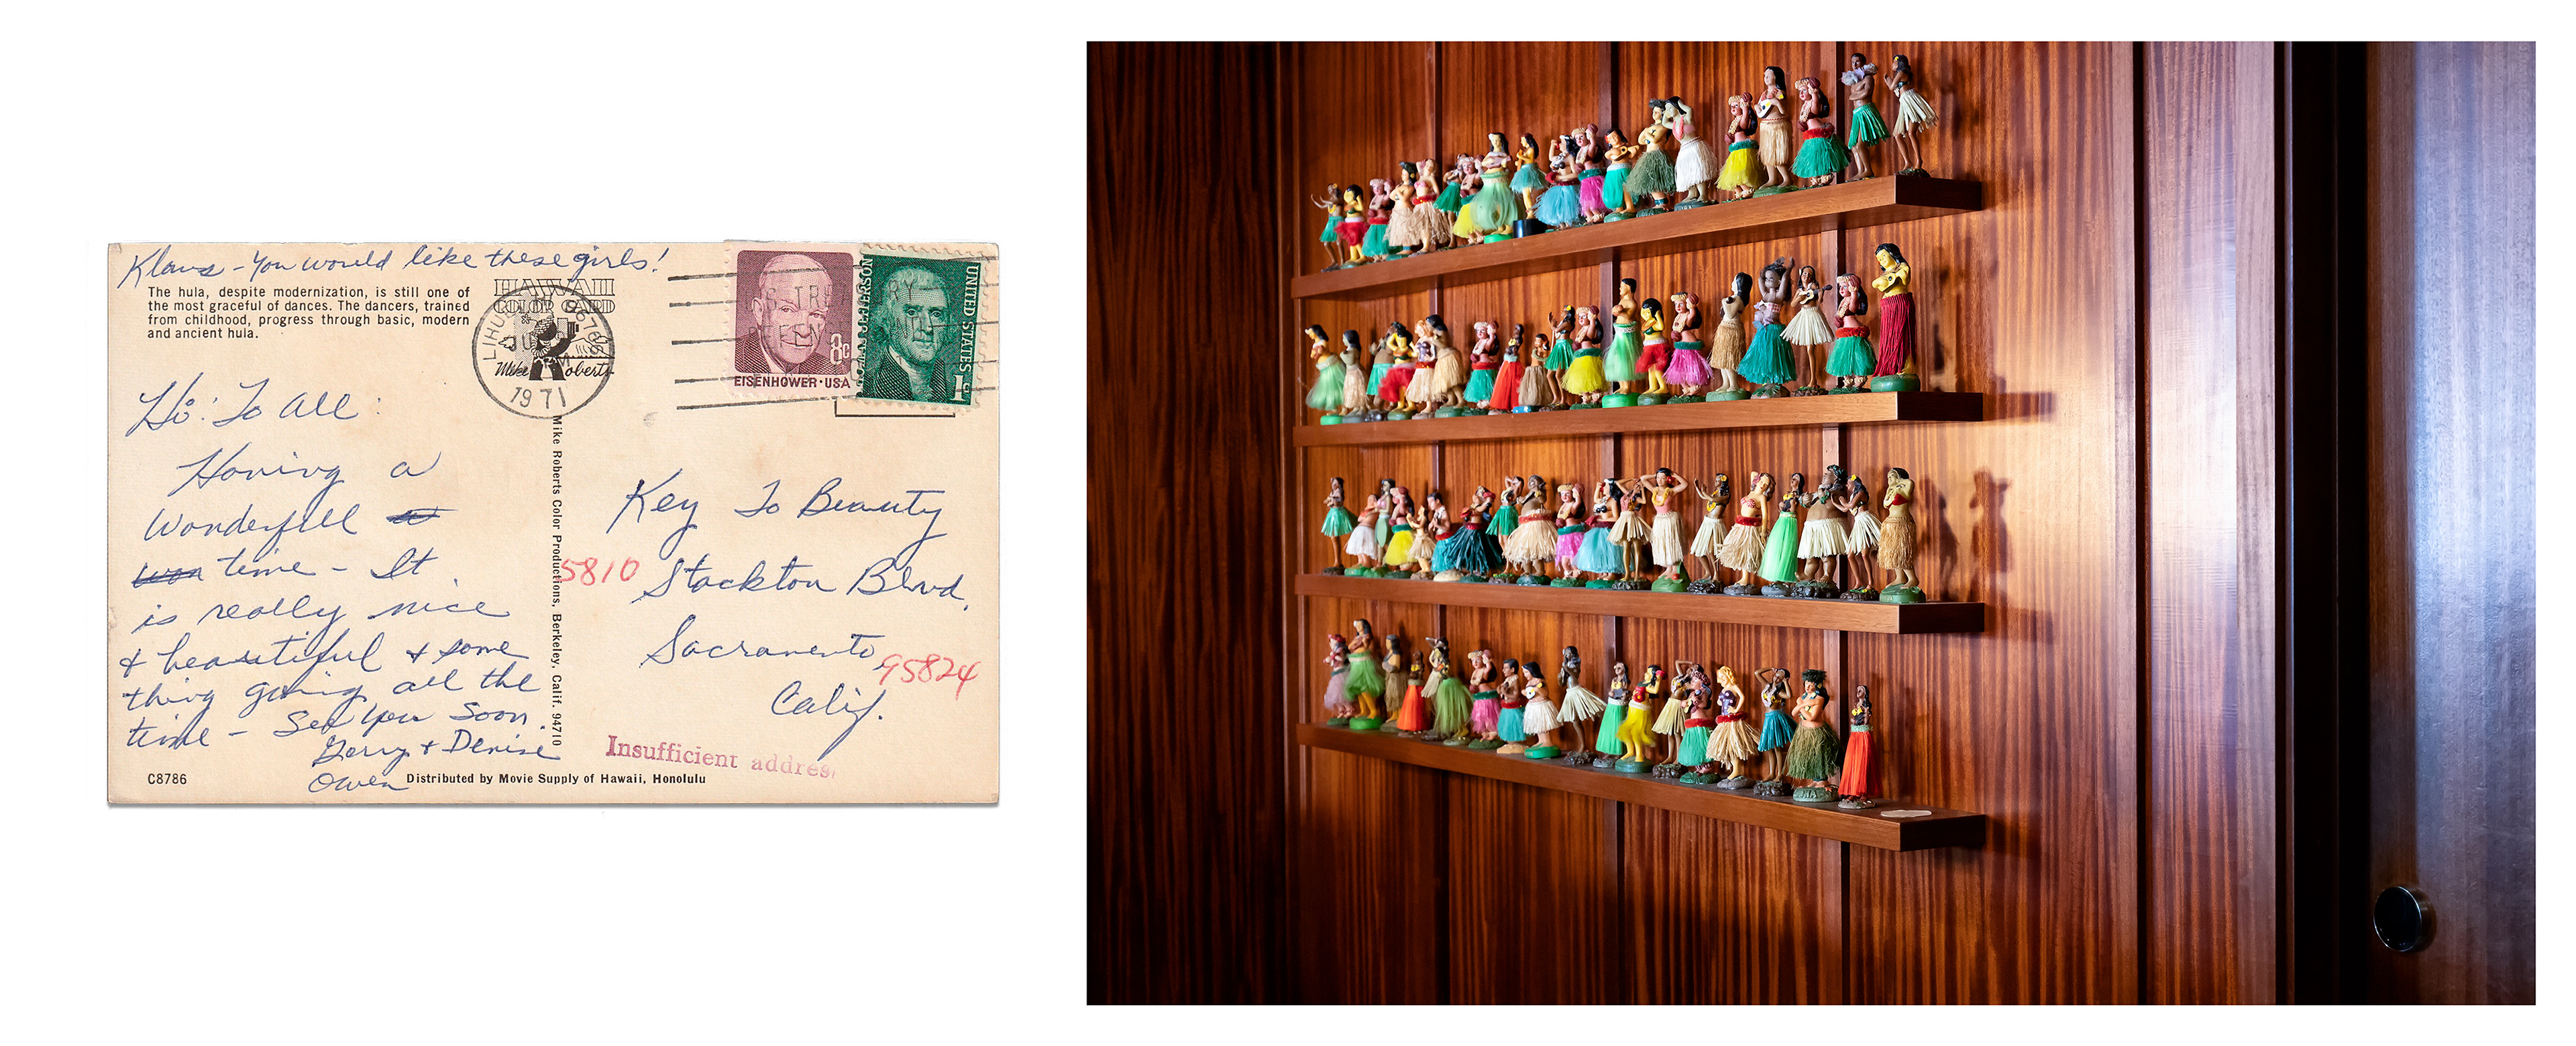 Klaus - You would like these girls!
The hula, despite modernization, is still one of
the most graceful of dances. The dancers, trained
from childhood, progress through basic, modern
and ancient hula.
HAWAII
COLOR CARD
Mike Roberts
LIHUE
1971
EISENHOWER·USA
8c
JEFFERSON
UNITED STATES
1
Hi: To All:
Having a
Wonderfull
time - It
is really nice
& beautiful & some
thing going all the
time - See You Soon.
Gerry & Denise
Owen
Mike Roberts Color Productions, Berkeley, Calif. 94710
Key To Beauty
5810 Stockton Blvd.
Sacramento, 95824
Calif.
Insufficient address
C8786
Distributed by Movie Supply of Hawaii, Honolulu